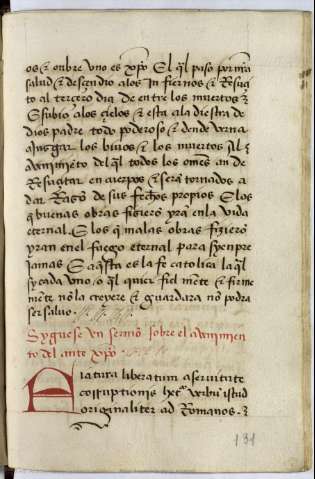 os & onbre vno es xpo El ql paso por nra
salud & desçendio a los Infiernos & Resuçi
to al terçero dia de entre los muertos &
Subio a los çielos & esta a la diestra de
dios padre todo poderoso & dende verna
a Juzgar los biuos & los muertos al
avenimiẽto del ql todos los omes an de
Resuçitar en cuerpos & serã tornados a
dar Razõ de sus fechos propios E los
q buenas obras fizierõ yrã en la vida
eternal. E los q malas obras fizierõ
yran en el fuego eternal para syenpre
jamas E aqsta es la fe catolica la ql
sy cada vno o ql quier fiel mẽte & firme
mẽte no la creyere & guardara no podra
ser saluo
Syguese vn sermõ sobre el avenimien
to del ante xpo
iatura liberatum a seruitute
corruptionis hec verbũ istud
originaliter ad Romanos.
131